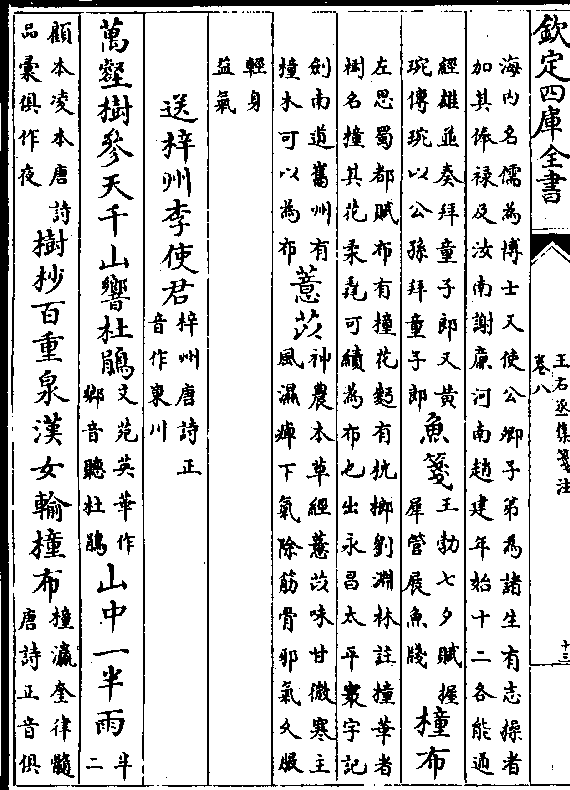 欽定四庫全書
王右丞集箋注
卷八
十三
海内名儒為博士又使公卿子弟為諸生有志操者
加其俸祿及汝南謝廉河南趙建年始十二各能通
經雄並奏拜童子郎又黄
琬傳琬以公孫拜童子郎
魚箋
王勃七夕賦握
犀管展魚牋
橦布
左思蜀都賦布有橦花麪有桄榔劉淵林註橦華者
樹名橦其花柔毳可績為布也出永昌太平寰宇記
劍南道巂州有
橦木可以為布
薏苡
神農本草經薏苡味甘微寒主
風濕痺下氣除筋骨邪氣久服
輕身
益氣
送梓州李使君
梓州唐詩正
音作東川
萬壑樹參天千山響杜鵑
文苑英華作
鄉音聽杜鵑
山中一半雨
半
二
顧本凌本唐詩
品彚俱作夜
樹杪百重泉漢女輸橦布
橦瀛奎律髓
唐詩正音俱